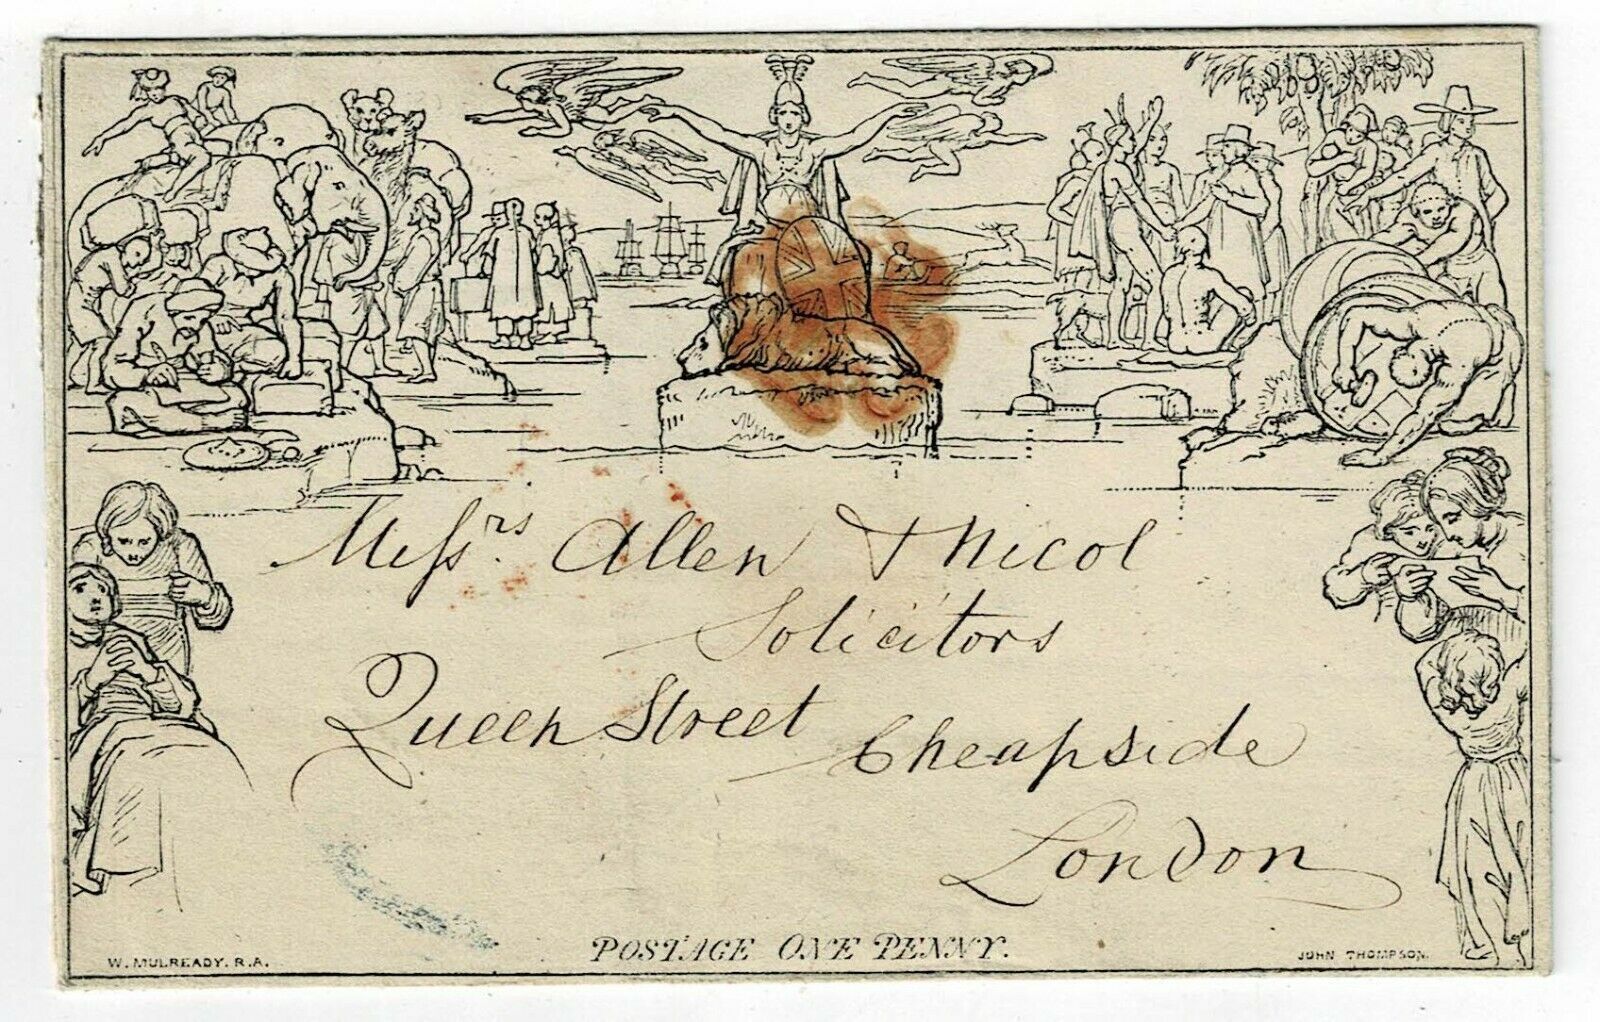 Messrs Allen & Nicol
Solicitors
Queen Street Cheapside
London
POSTAGE ONE PENNY.
W. MULREADY. R.A.
JOHN THOMPSON.